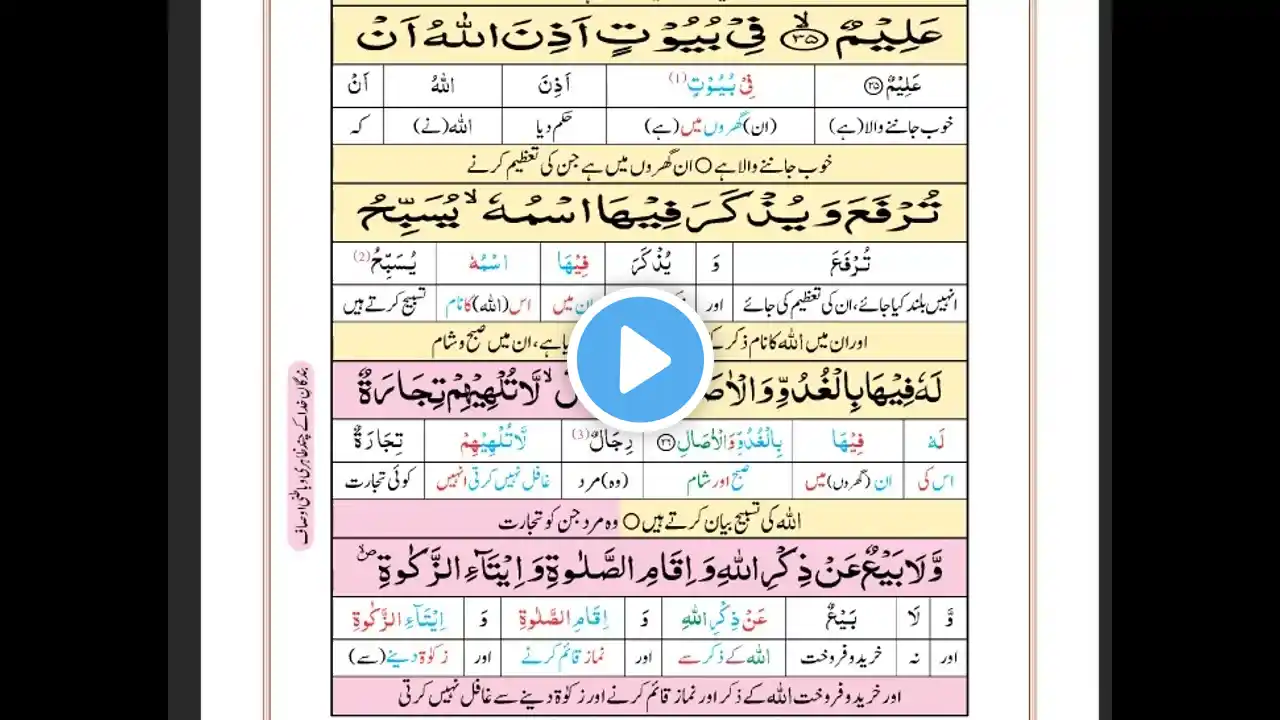 عَلِيْمٌ ۙ﴿۳۵﴾ فِيْ بُيُوْتٍ اَذِنَ اللّٰهُ اَنْ
عَلِيْمٌ ﴿۳۵﴾ فِيْ بُيُوْتٍ (1) اَذِنَ اللّٰهُ اَنْ
خوب جاننے والا (ہے) (ان) گھروں میں (ہے) حکم دیا اللّٰہ (نے) کہ
خوب جاننے والا ہے ○ ان گھروں میں ہے جن کی تعظیم کرنے
تُرْفَعَ وَ يُذْكَرَ فِيْهَا اسْمُهٗ ۙ يُسَبِّحُ
تُرْفَعَ وَ يُذْكَرَ فِيْهَا اسْمُهٗ يُسَبِّحُ (2)
انہیں بلند کیا جائے، ان کی تعظیم کی جائے اور ان میں اس (اللّٰہ) کا نام تسبیح کرتے ہیں
اور ان میں اللّٰہ کا نام ذکر ہے، ان میں صبح و شام
لَهٗ فِيْهَا بِالْغُدُوِّ وَالْاٰصَ لَّا تُلْهِيْهِمْ تِجَارَةٌ
لَهٗ فِيْهَا بِالْغُدُوِّ وَالْاٰصَالِ ﴿۳۶﴾ رِجَالٌ (3) لَّا تُلْهِيْهِمْ تِجَارَةٌ
اس کی ان (گھروں) میں صبح اور شام (وہ) مرد غافل نہیں کرتی انہیں کوئی تجارت
اللّٰہ کی تسبیح بیان کرتے ہیں ○ وہ مرد جن کو تجارت
وَّ لَا بَيْعٌ عَنْ ذِكْرِ اللّٰهِ وَ اِقَامِ الصَّلٰوةِ وَ اِيْتَآءِ الزَّكٰوةِ ۪ۙ
وَّ لَا بَيْعٌ عَنْ ذِكْرِ اللّٰهِ وَ اِقَامِ الصَّلٰوةِ وَ اِيْتَآءِ الزَّكٰوةِ
اور نہ خرید و فروخت اللّٰہ کے ذکر سے اور نماز قائم کرنے اور زکوٰۃ دینے (سے)
اور خرید و فروخت اللّٰہ کے ذکر اور نماز قائم کرنے اور زکوٰۃ دینے سے غافل نہیں کرتی
بندگانِ خدا کے چند ظاہری و باطنی اوصاف